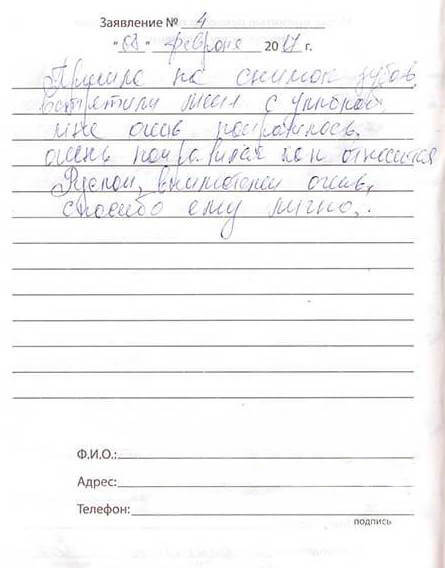 Заявление № 4
"08" февраля 2017 г.
Пришла на снимок зубов,
встретили меня с улыбкой
мне очень понравилось,
очень понравилась как относится
Руслан, внимателен очень,
спасибо ему лично.
Ф.И.О.:
Адрес:
Телефон:
подпись